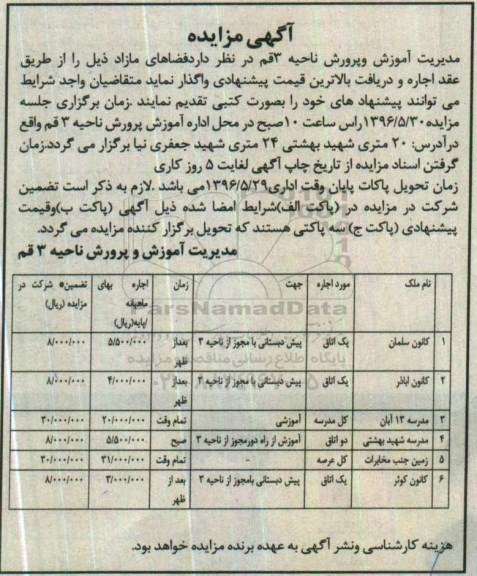 آگهی مزایده
مدیریت آموزش وپرورش ناحیه ۳قم در نظر داردفضاهای مازاد ذیل را از طریق
عقد اجاره و دریافت بالاترین قیمت پیشنهادی واگذار نماید متقاضیان واجد شرایط
می توانند پیشنهاد های خود را بصورت کتبی تقدیم نمایند .زمان برگزاری جلسه
مزایده۱۳۹۶/۵/۳۰راس ساعت ۱۰صبح در محل اداره آموزش پرورش ناحیه ۳ قم واقع
درآدرس: ۲۰ متری شهید بهشتی ۲۴ متری شهید جعفری نیا برگزار می گردد.زمان
گرفتن اسناد مزایده از تاریخ چاپ آگهی لغایت ۵ روز کاری
زمان تحویل پاکات پایان وقت اداری۱۳۹۶/۵/۲۹می باشد .لازم به ذکر است تضمین
شرکت در مزایده در (پاکت الف)شرایط امضا شده ذیل آگهی (پاکت ب)وقیمت
پیشنهادی (پاکت ج) سه پاکتی هستند که تحویل برگزار کننده مزایده می گردد.
مدیریت آموزش و پرورش ناحیه ۳ قم
نام ملک مورد اجاره جهت زمان اجاره بهای ماهیانه /پایه(ریال) تضمین* شرکت در مزایده (ریال)
۱ کانون سلمان یک اتاق پیش دبستانی با مجوز از ناحیه ۳ بعداز ظهر ۵/۵۰۰/۰۰۰ ۸/۰۰۰/۰۰۰
۲ کانون اباذر یک اتاق پیش دبستانی با مجوز از ناحیه ۳ بعداز ظهر ۴/۰۰۰/۰۰۰ ۸/۰۰۰/۰۰۰
۳ مدرسه ۱۳ آبان کل مدرسه آموزشی تمام وقت ۲۰/۰۰۰/۰۰۰ ۳۰/۰۰۰/۰۰۰
۴ مدرسه شهید بهشتی دو اتاق آموزش از راه دورمجوز از ناحیه ۳ صبح ۵/۵۰۰/۰۰۰ ۸/۰۰۰/۰۰۰
۵ زمین جنب مخابرات کل عرصه - تمام وقت ۳۱/۰۰۰/۰۰۰ ۳۰/۰۰۰/۰۰۰
۶ کانون کوثر یک اتاق پیش دبستانی بامجوز از ناحیه ۳ بعد از ظهر ۳/۰۰۰/۰۰۰ ۸/۰۰۰/۰۰۰
ParsNamadData
پایگاه اطلاع رسانی مناقصه و مزایده
هزینه کارشناسی ونشر آگهی به عهده برنده مزایده خواهد بود.